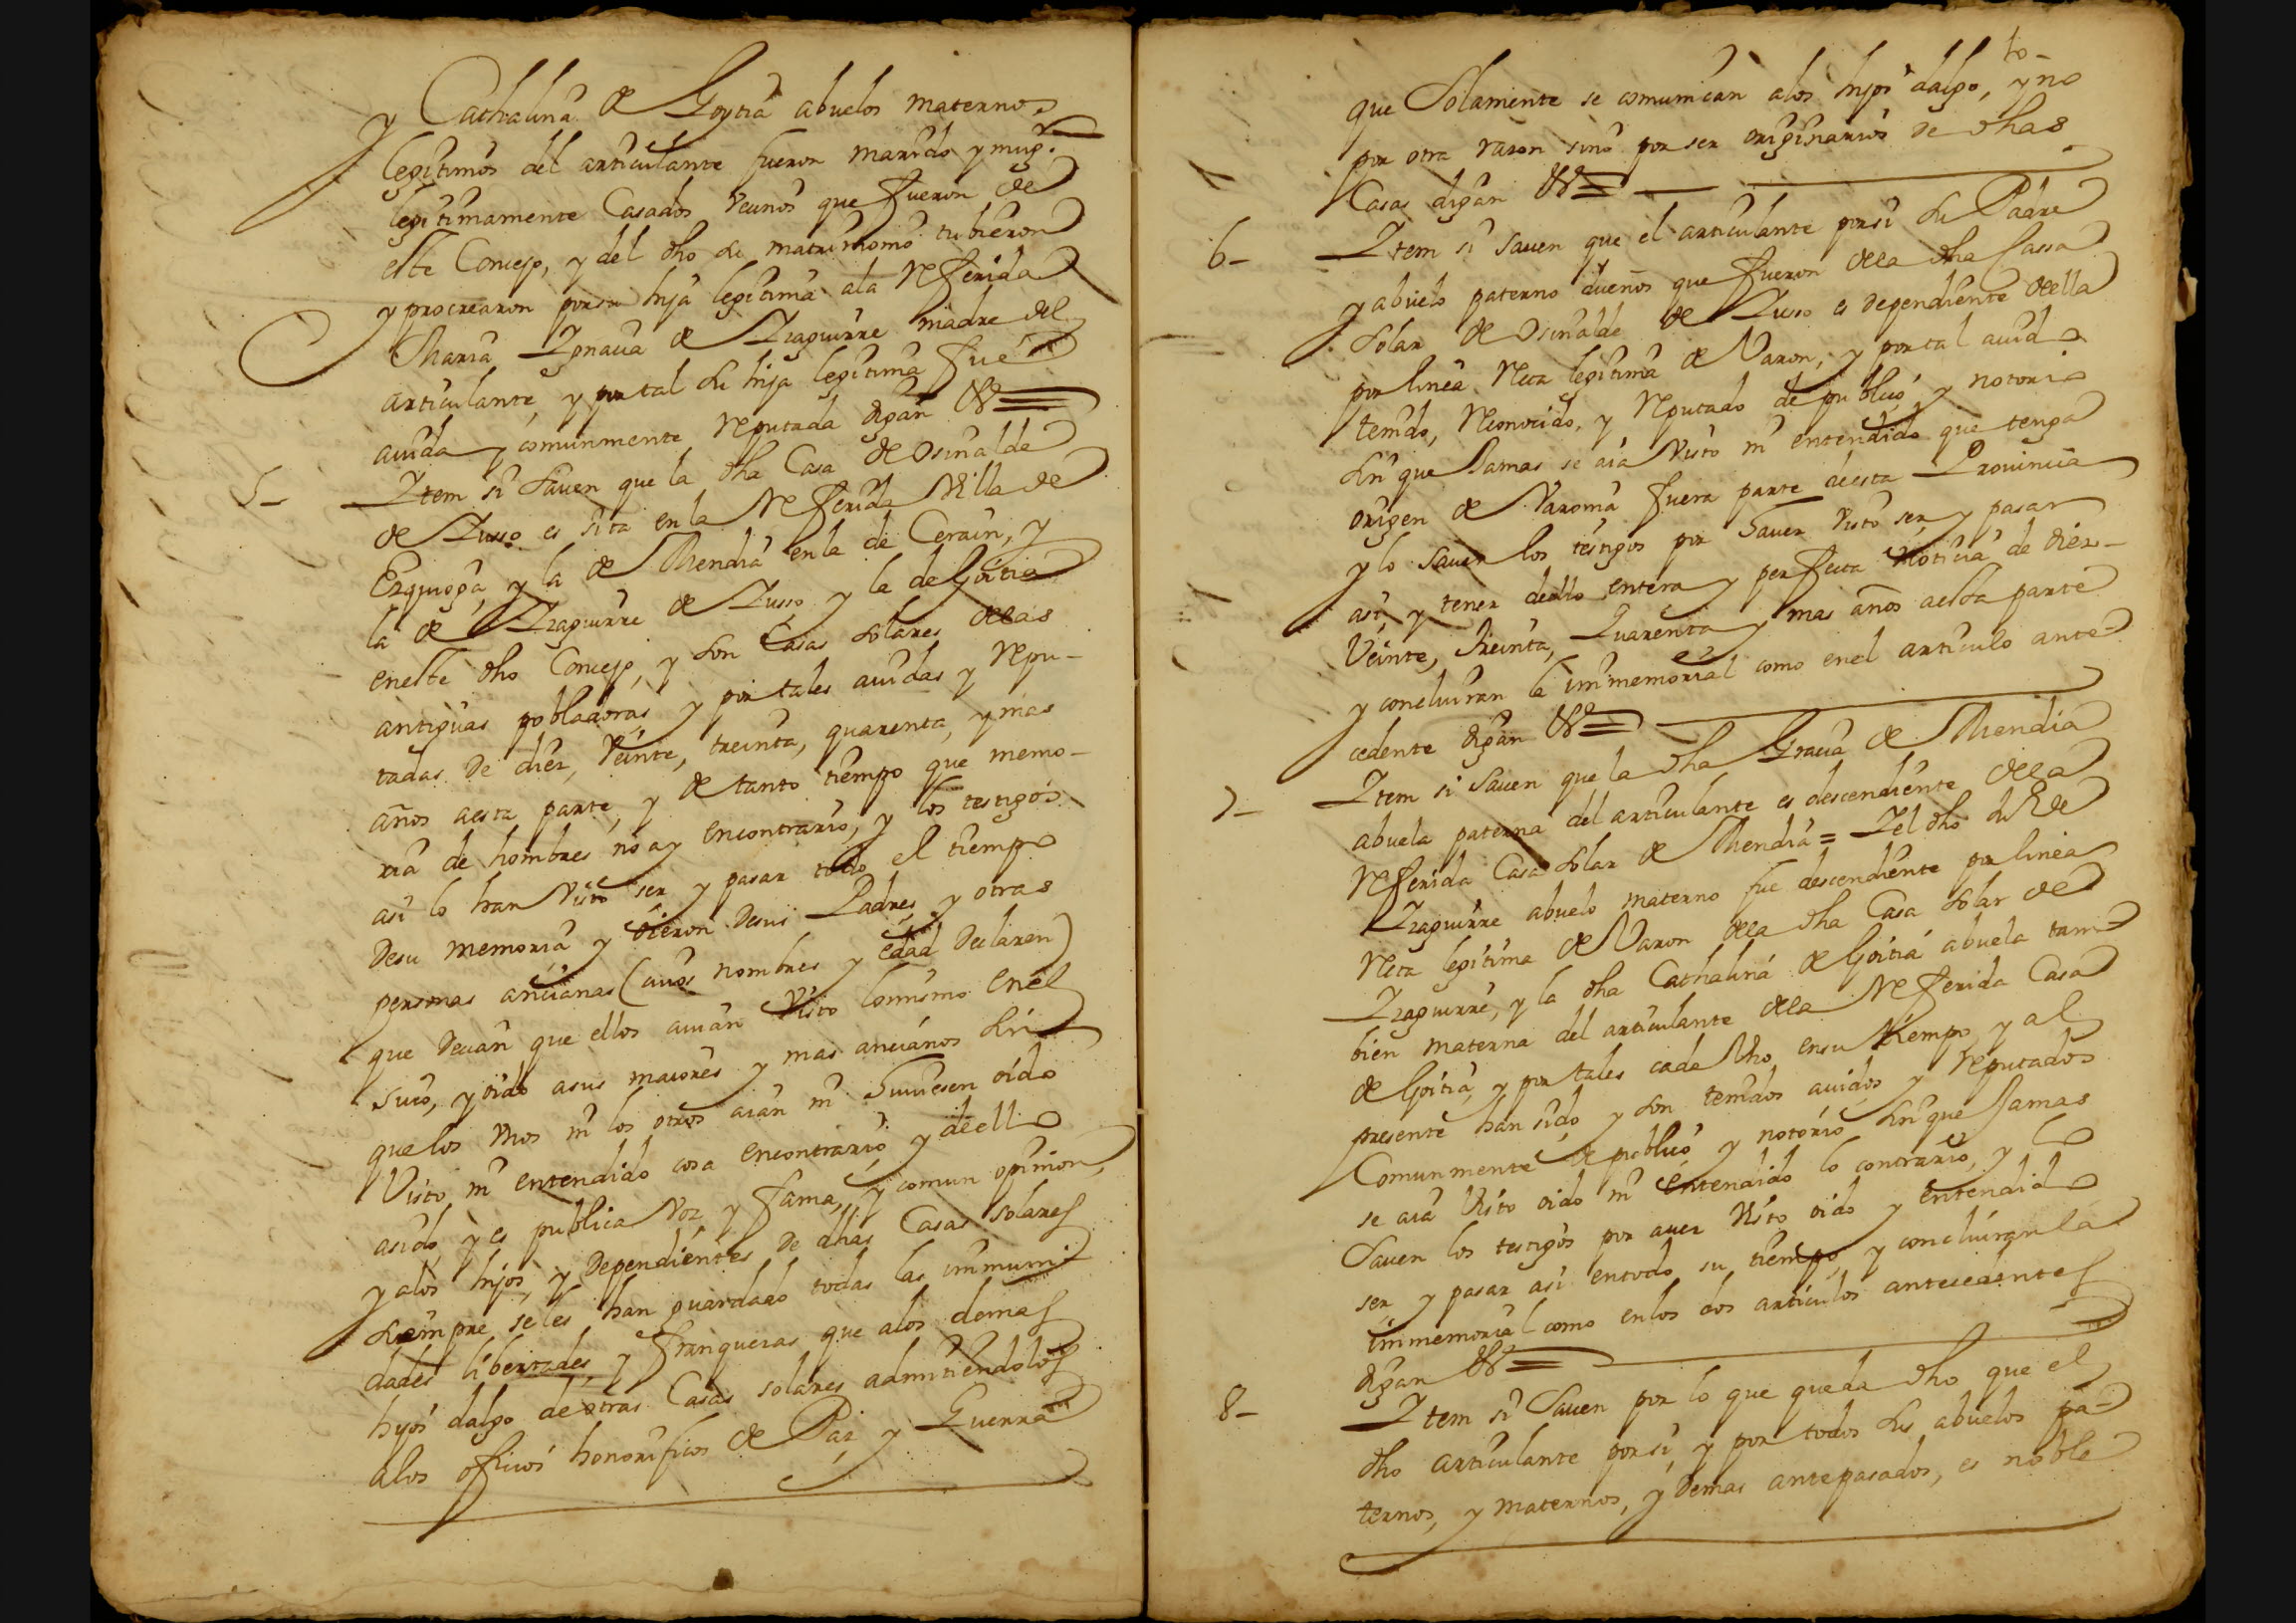 y Cathalina de Goytia abuelos maternos
legitimos del articulante fueron marido y mug.r
legitimamente Casados Vecinos que fueron de
este Concejo, y del dho su matrimonio tubieron
y procrearon por su hija legitima ala Referida
Maria Ignacia de Izaguirre madre del
articulante, y por tal su hija legitima fué
auida y comunmente Reputada digan &=
5- Item si Sauen que la dha Casa de Osinalde
de Susso es sita en la Referida Villa de
Ezquioga, y la de Mendia en la de Cerain, y
la de Izaguirre de Susso y la de Goitia
eneste dho Concejo, y son Casas solares delas
antiguas pobladoras, y por tales auidas y Repu-
tadas de diez, Veinte, treinta, quarenta, y mas
años aesta parte, y de tanto tiempo que memo-
ria de hombres no ay encontrario, y los testigos
asi lo han Visto ser y pasar todo el tiempo
desu memoria y oieron desus Padres y otras
personas ancianas (cuios nombres y edad declaren)
que decian que ellos auian Visto lomismo enel
suio, y oido asus maiores y mas ancianos sin
quelos Vnos ni los otros aian ni huuiesen oido
Visto, ni entendido cosa encontrario y de ello
asido, y es publica Voz, y fama, y comun opinion,
y alos hijos, y dependientes de dhas Casas solares
siempre seles han guardado todas las immuni-
dades libertades, y franquezas que alos demas
hijos dalgo de otras Casas solares admitiendolos
alos oficios honorificos de Paz y Guerra
to-
que Solamente se comunican alos hijos dalgo, y no
por otra razon sino por ser originarios de dhas
Casas digan &=
6- Item si sauen que el articulante porsi su Padre
y abuelo paterno dueños que fueron dela dha Cassa
Solar de Osinalde de Susso es dependiente della
por linea Recta legitima de Varon, y portal auido
tenido, Reconocido, y Reputado de publico y notorio
sin que Jamas se aia Visto ni entendido que tenga
origen de Varonia fuera parte desta Prouincia
y lo sauen los testigos por hauer Visto ser y pasar
asi, y tener dello entera y perfecta noticia de diez-
Veinte, treinta, quarenta y mas años aesta parte
y concluiran la immemorial como enel articulo ante-
cedente digan &=
7- Item si sauen que la dha Gracia de Mendia
abuela paterna del articulante es descendiente dela
Referida Casa Solar de Mendia = Y el dho de
Izaguirre abuelo materno fue descendiente por linea
Recta legitima de Varon dela dha Casa Solar de
Izaguirre, y la dha Cathalina de Goitia abuela tam-
bien materna del articulante dela Referida Casa
de Goitia, y por tales cada Vno, ensu tiempo y al
presente han sido, y son tenidos auidos, y Reputados
Comunmente de publico y notorio sin que Jamas
se aia Visto oido ni entendido lo contrario, y lo
Sauen los testigos por auer Visto oido y entendido
ser y pasar asi entodo su tiempo, y concluiran la
immemorial como enlos dos articulos antecedentes
digan &=
8- Item si Sauen por lo que queda dho que el
dho articulante porsi, y por todos sus abuelos pa-
ternos, y maternos, y demas antepasados, es noble